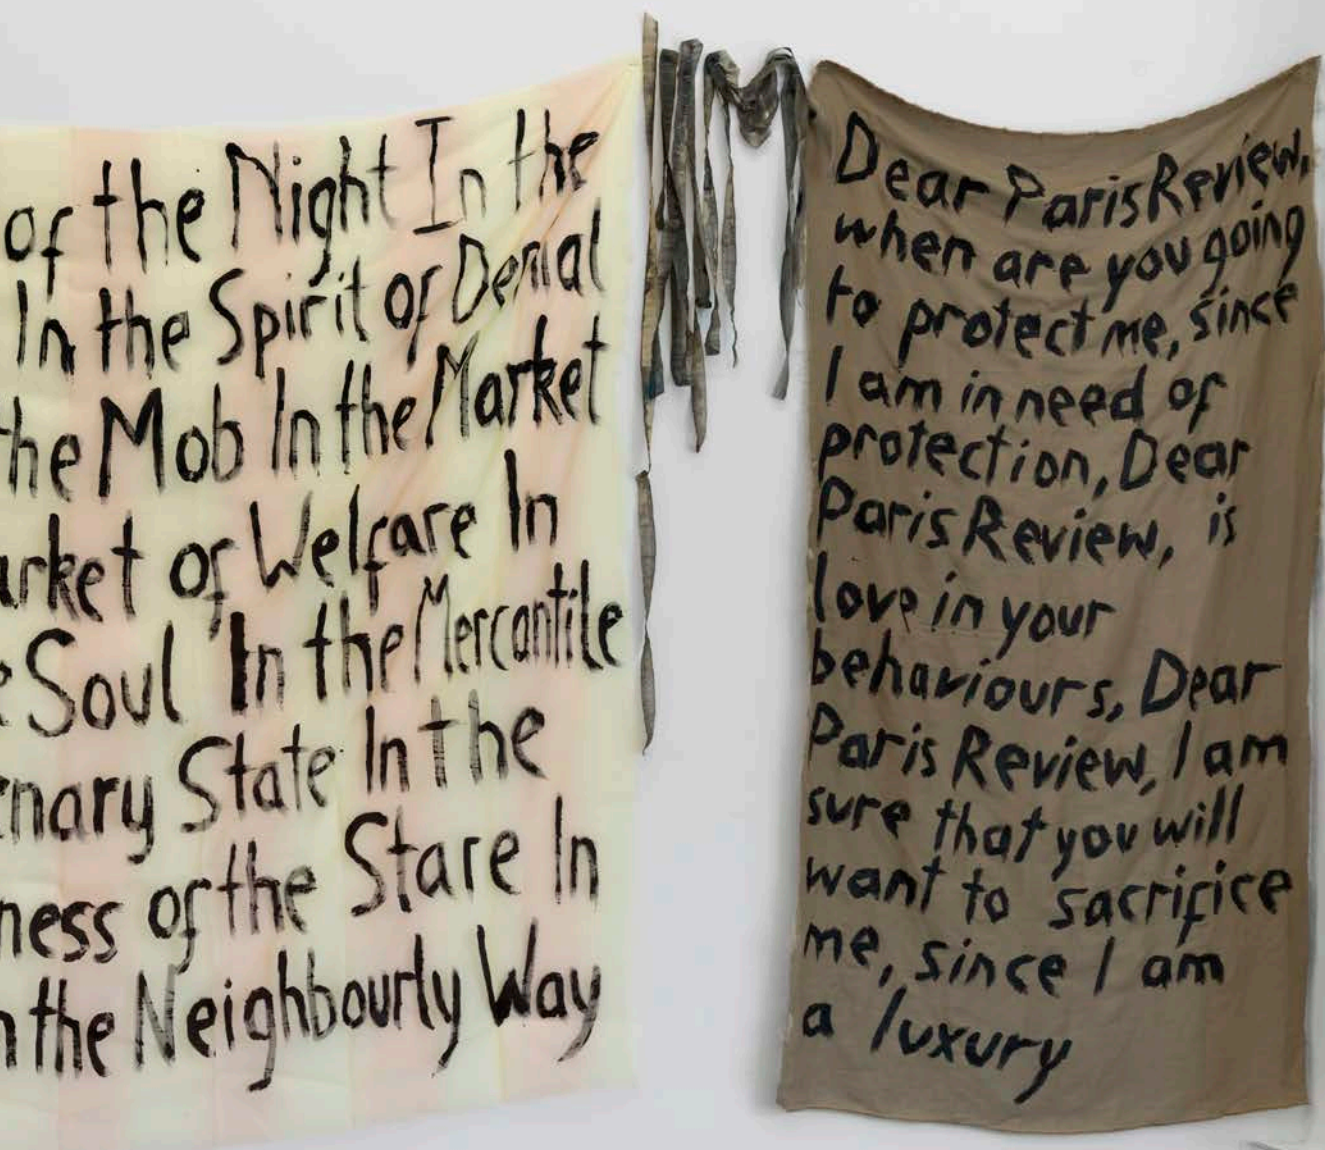 of the Night In the
In the Spirit of Denial
the Mob In the Market
of Welfare In
Soul In the Mercantile
State In the
of the Stare In
the Neighbourly Way
Dear Paris Review,
when are you going
to protect me, since
I am in need of
protection, Dear
Paris Review, is
love in your
behaviours, Dear
Paris Review, I am
sure that you will
want to sacrifice
me, since I am
a luxury